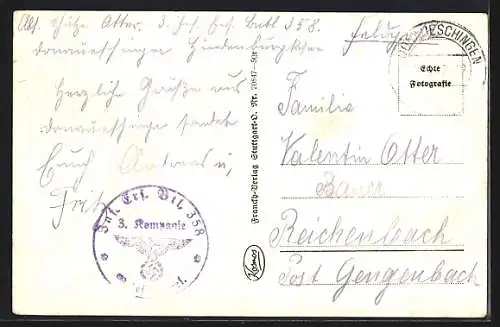 Abs. Schütze Otter. 3. Inf. Ers. Batl 358.
Donaueschingen Hindenburgkaserne
Feldpost
DONAUESCHINGEN
Echte
Fotografie
Herzliche Grüße aus
Donaueschingen sendet
Euch Andreas u.
Fritz
Inf. Ers. Btl. 358
3. Kompanie
Franckh-Verlag Stuttgart-O. Nr.
Kosmos
Familie
Valentin Otter
Bauer
Reichenbach
Post Gengenbach